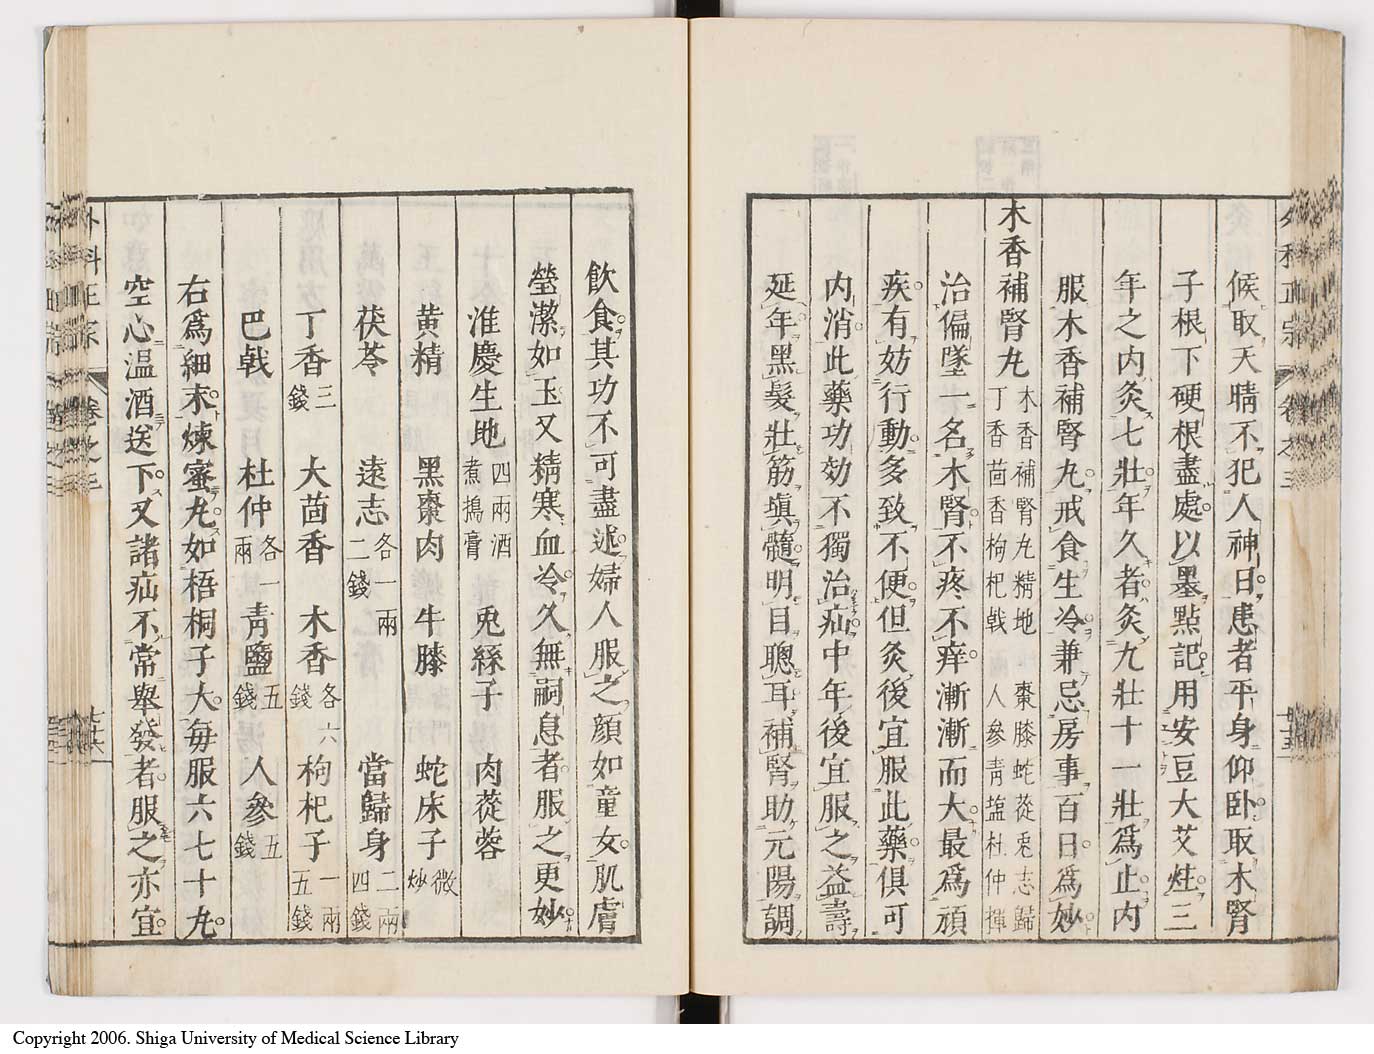 候取天晴不犯人神日患者平身仰卧取木腎
子根下硬根盡處以墨點記用安豆大艾炷三
年之内灸七壯年久者灸九壯十一壯爲止内
服木香補腎丸戒食生冷兼忌房事百日爲妙
木香補腎丸
木香補腎丸精地 棗膝蛇蓯兎志歸
丁香茴香枸杞戟 人參青塩杜仲
治偏墜一名木腎不疼不痒漸漸而大最爲頑
疾有妨行動多致不便但灸後宜服此藥俱可
内消此藥功効不獨治疝中年後宜服之益壽
延年黑髮壯筋塡髓明目聰耳補腎助元陽調
外科正宗 卷之三
飲食其功不可盡述婦人服之顔如童女肌膚
瑩潔如玉又精寒血冷久無嗣息者服之更妙
淮慶生地四兩酒煮搗膏 兎絲子 肉蓯蓉
黄精 黑棗肉 牛膝 蛇床子微炒
茯苓 遠志各一兩二錢 當歸身二兩四錢
丁香三錢 大茴香 木香各六錢 枸杞子一兩五錢
巴戟 杜仲各一兩 青鹽五錢 人參五錢
右爲細末煉蜜丸如梧桐子大毎服六七十丸
空心温酒送下又諸疝不常舉發者服之亦宜
外科正宗 卷之三
Copyright 2006. Shiga University of Medical Science Library